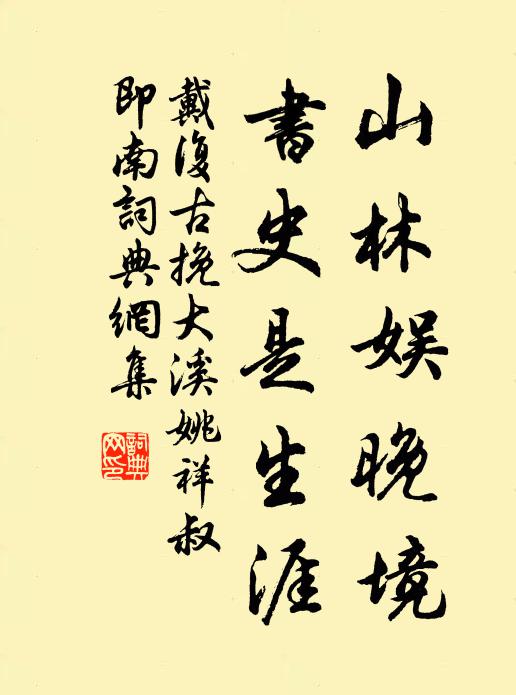 山林娱晚境
書史是生涯
戴復古挽大溪姚祥叔
即南詞典網集
詞典網印